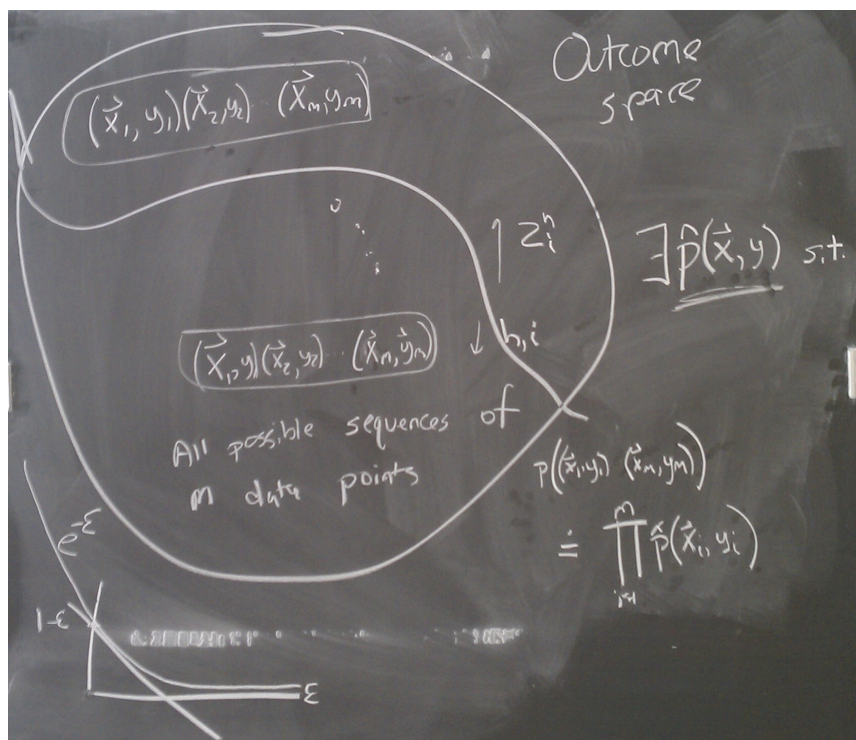 Outcome
space
(x⃗₁, y₁)(x⃗₂, y₂) (x⃗ₘ, yₘ)
∃ p̂(x⃗, y) s.t.
(x⃗₁, y₁)(x⃗₂, y₂) ·· (x⃗ₘ, y⃗ₘ)
↓ h, i
All possible sequences of
m data points
p((x⃗₁, y₁) (x⃗ₘ, yₘ))
= ∏ᵢ₌₁ᵐ p̂(x⃗ᵢ, yᵢ)
e^-ε
1-ε
ε